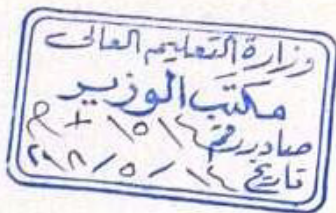 وزارة التعليم العالى
مكتب الوزير
صادر رقم ١٥١٤ + م
تاريخ ١٤ / ٥ /